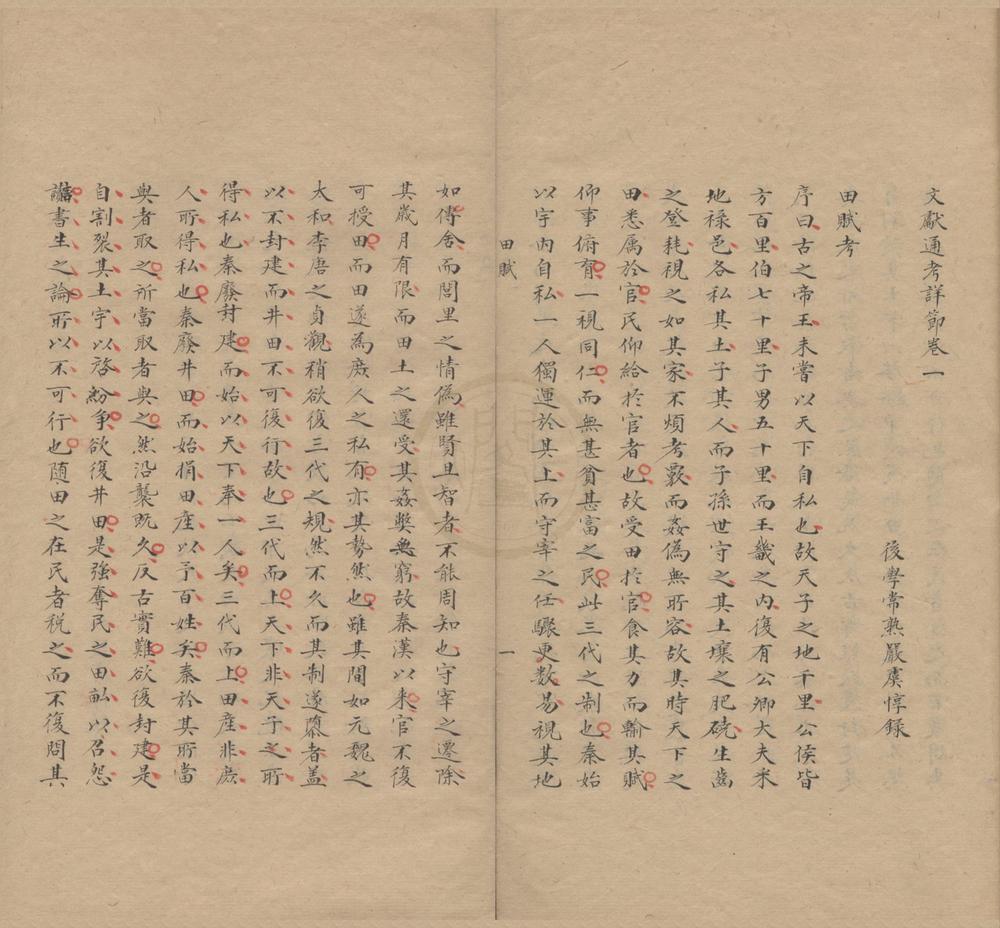 文獻通考詳節卷一
後學常熟嚴虞惇録
田賦考
序曰古之帝王未嘗以天下自私也故天子之地千里公侯皆
方百里伯七十里子男五十里而王畿之内復有公卿大夫采
地禄邑各私其土子其人而子孫世守之其土壤之肥磽生齒
之登耗視之如其家不煩考覈而姦偽無所容故其時天下之
田悉属於官民仰給於官者也故受田於官食其力而輸其賦
仰事俯育一視同仁而無甚貧甚富之民此三代之制也秦始
以宇内自私一人獨運於其上而守宰之任驟更数易視其地
田賦
一
如傳舍而閭里之情偽雖賢且智者不能周知也守宰之遷除
其歲月有限而田土之還受其姦弊無窮故秦漢以来官不復
可授田而田遂為庶人之私有亦其勢然也雖其間如元魏之
太和李唐之貞觀稍欲復三代之規然不久而其制遂隳者盖
以不封建而井田不可復行故也三代而上天下非天子之所
得私也秦廢封建而始以天下奉一人矣三代而上田産非庶
人所得私也秦廢井田而始捐田産以予百姓矣秦於其所當
與者取之所當取者與之然沿襲既久反古實難欲復封建是
自割裂其土宇以啓紛争欲復井田是強奪民之田畆以召怨
讟書生之論所以不可行也随田之在民者税之而不復問其